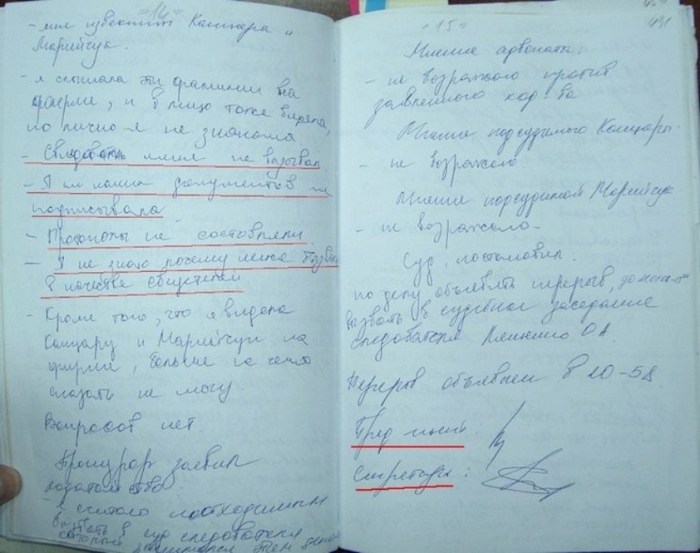 =14=
- мне известны Канцара и
Марийчук.
- я слышала эти фамилии на
ферме, и в лицо тоже видела,
но лично я не знакома
- Следователь меня не вызывал
- Я никаких документов не
подписывала
- Протоколы не составляли
- Я не знаю почему меня вызвали
в качестве свидетеля
- Кроме того, что я видела
Канцару и Марийчук на
ферме, больше ничего
сказать не могу
Вопросов нет.
Прокурор заявил
ходатайство:
- Я считаю необходимым
вызвать в суд следователя
который занимался этим
-15-
Мнение адвоката:
- не возражаю против
заявленного ход-ва
Мнение подсудимого Канцары.
- не возражаю
Мнение подсудимой Марийчук
- не возражаю.
Суд постановил:
по делу объявить перерыв,
вызвать в судебное заседание
следователя О.А.
Перерыв объявлен в 10-58
Пред-ший
Секретарь: